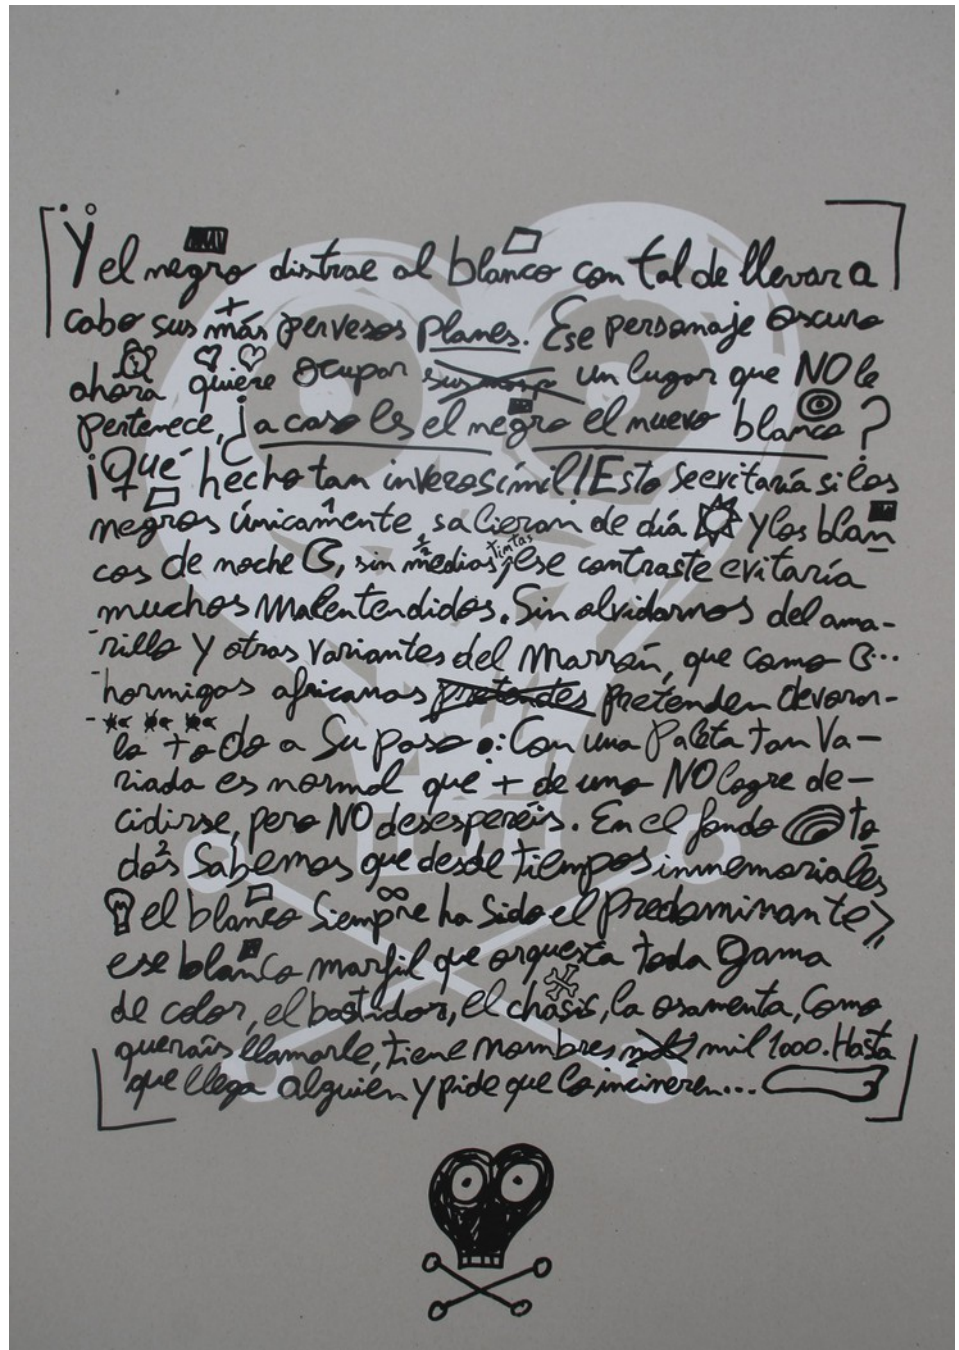 Y el negro distrae al blanco con tal de llevar a
cabo sus más pervesos planes. Ese personaje oscuro
ahora quiere ocupar un lugar que NO le
pertenece, ¿a caso es el negro el nuevo blanco?
¡Qué hecho tan inverosímil! Esto se evitaría si los
negros únicamente salieran de día y los blan
cos de noche, sin medias tintas, ese contraste evitaría
muchos malentendidos. Sin olvidarnos del ama-
rillo y otras variantes del marrón, que como
hormigas africanas pretenden devorar-
lo todo a su paso: Con una Paleta tan Va-
riada es normal que + de uno NO logre de-
cidirse, pero NO desesperéis. En el fondo to
dos Sabemos que desde tiempos inmemoriales
el blanco Siempre ha Sido el Predominante,
ese blanco marfil que orquesta toda Gama
de color, el bastidor, el chasis, la osamenta, Como
queráis llamarle, tiene nombres mil 1000. Hasta
que llega alguien y pide que lo incineren...